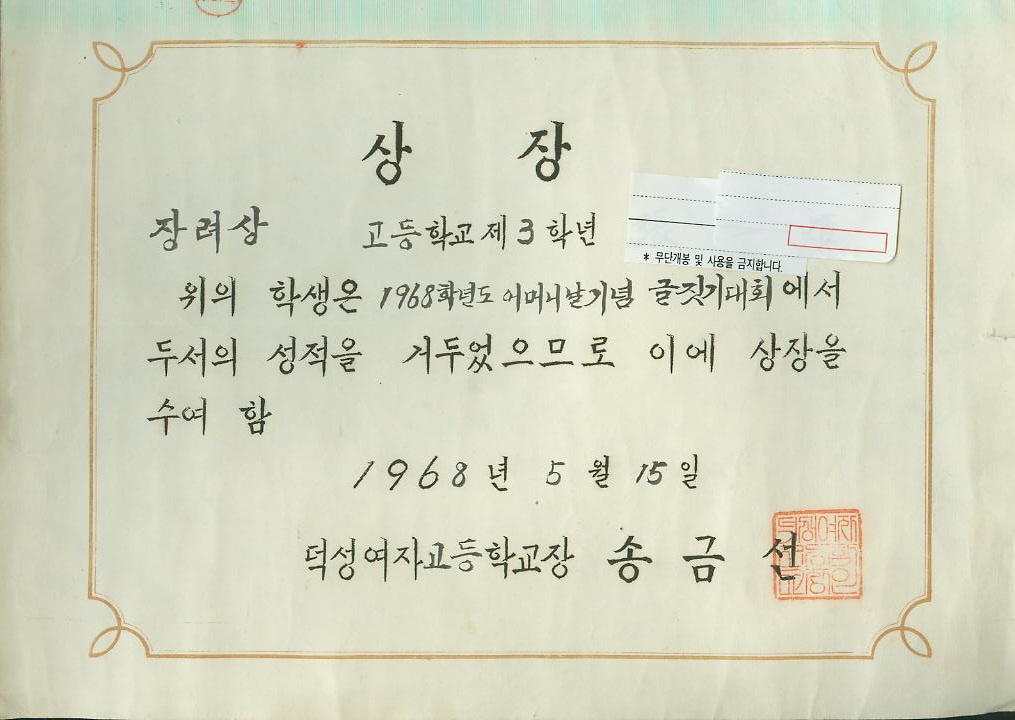 상 장
장려상 고등학교 제 3 학년
* 무단개봉 및 사용을 금지합니다.
위의 학생은 1968학년도 어머니날기념 글짓기대회에서
두서의 성적을 거두었으므로 이에 상장을
수여 함
1968 년 5 월 15 일
덕성여자고등학교장 송 금 선